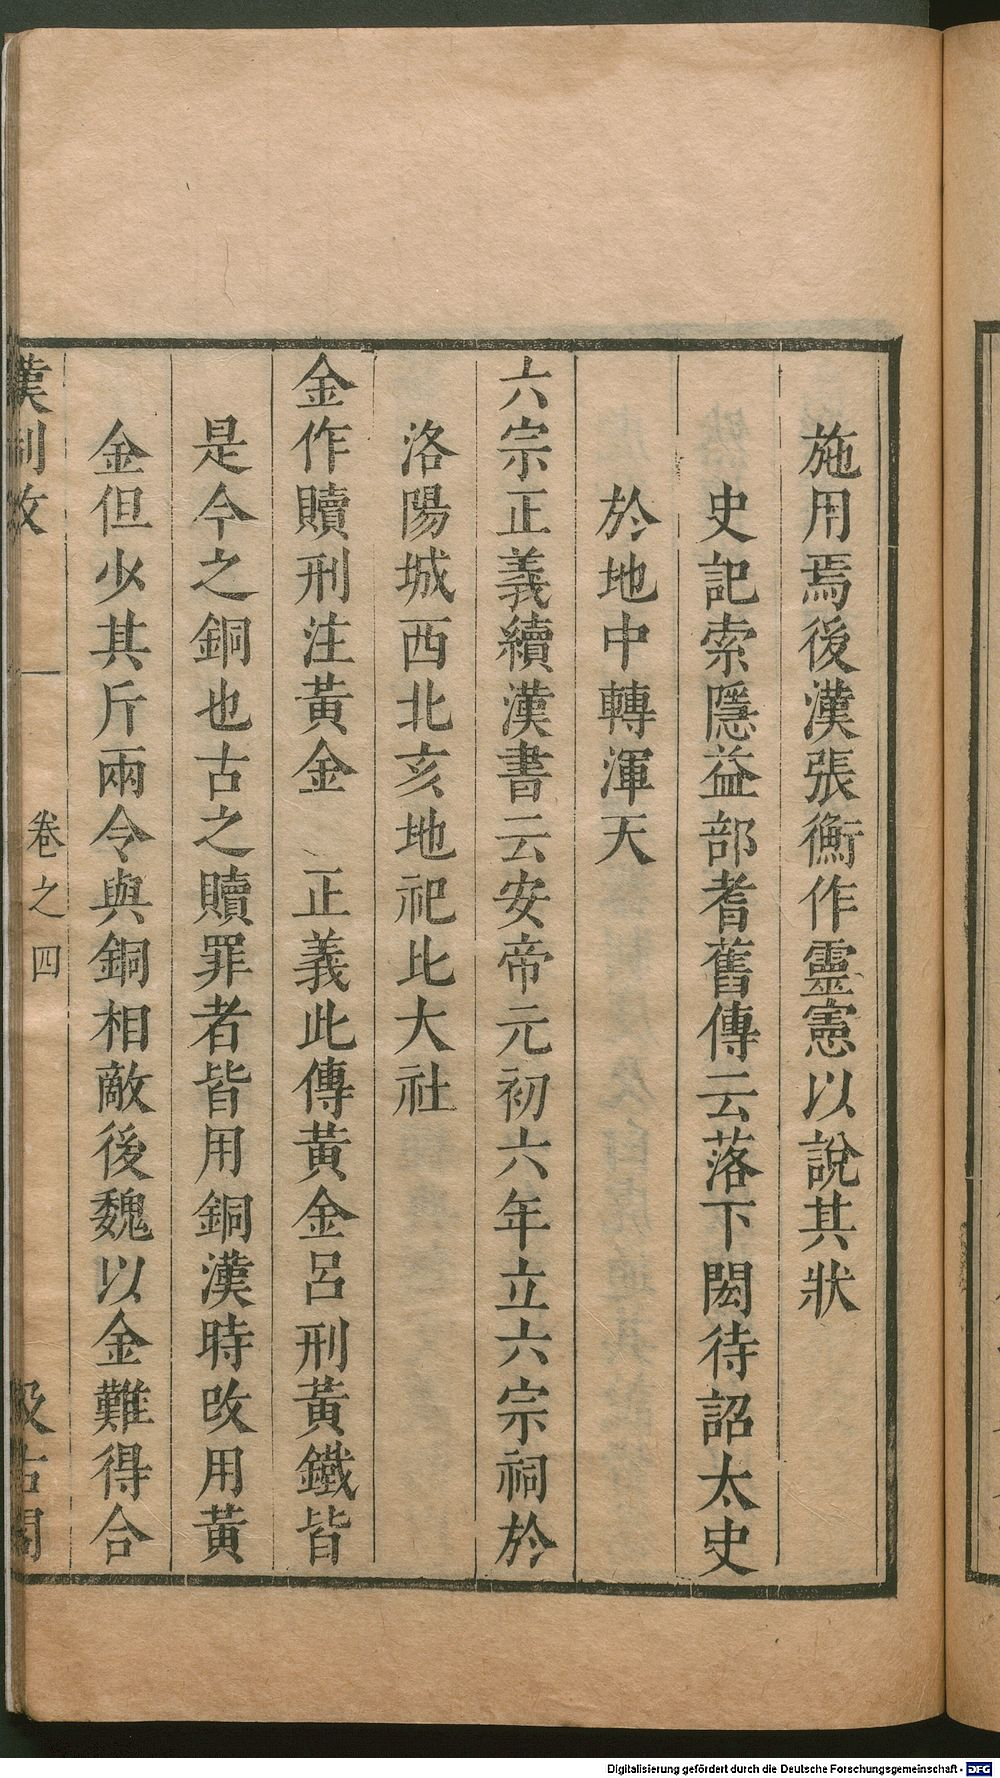 施用焉後漢張衡作靈憲以說其狀
史記索隱益部耆舊傳云落下閎待詔太史
於地中轉渾天
六宗正義續漢書云安帝元初六年立六宗祠於
洛陽城西北亥地祀比大社
金作贖刑注黃金 正義此傳黃金呂刑黃鐵皆
是今之銅也古之贖罪者皆用銅漢時改用黃
金但少其斤兩令與銅相敵後魏以金難得合
漢制攷 卷之四 汲古閣
Digitalisierung gefördert durch die Deutsche Forschungsgemeinschaft - DFG